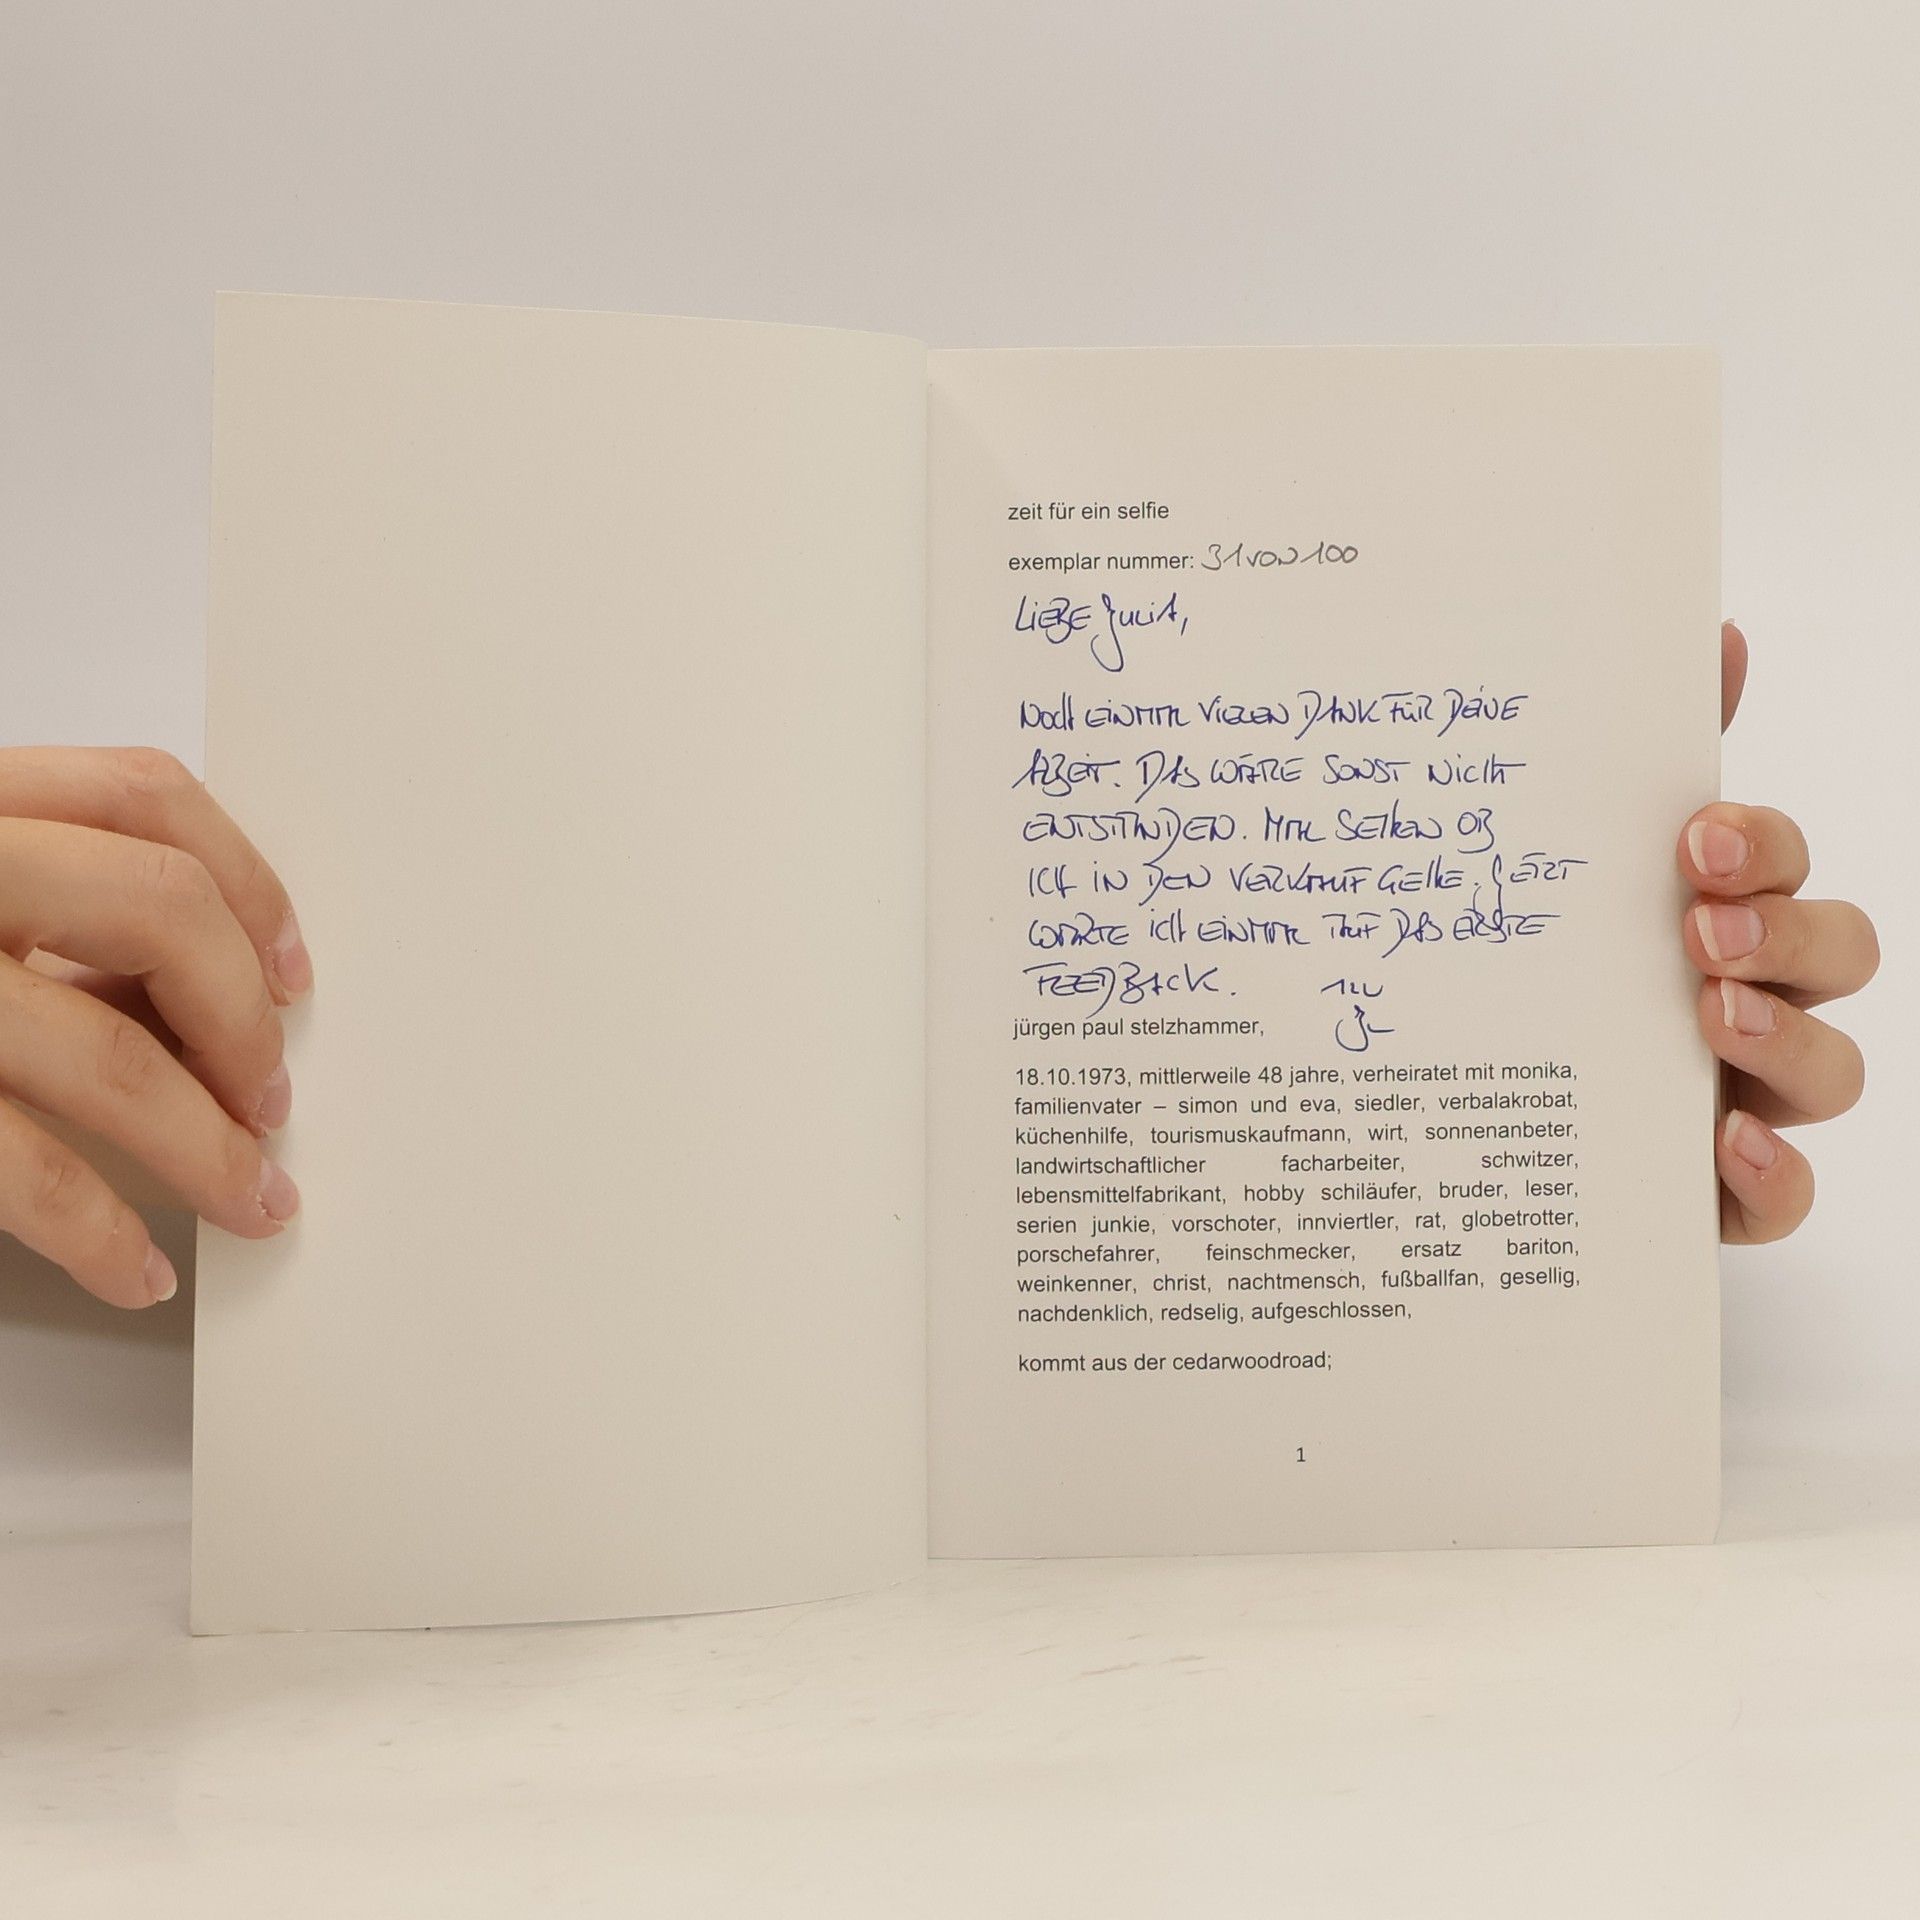 zeit für ein selfie
exemplar nummer: 31 von 100
LIEBE JULIA,
NOCH EINMAL VIELEN DANK FÜR DEINE
ARBEIT. DAS WÄRE SONST NICHT
ENTSTANDEN. MAL SEHEN OB
ICH IN DEN VERKAUF GEHE. JETZT
WARTE ICH EINMAL AUF DAS ERSTE
FEEDBACK.
jürgen paul stelzhammer,
18.10.1973, mittlerweile 48 jahre, verheiratet mit monika,
familienvater – simon und eva, siedler, verbalakrobat,
küchenhilfe, tourismuskaufmann, wirt, sonnenanbeter,
landwirtschaftlicher facharbeiter, schwitzer,
lebensmittelfabrikant, hobby schiläufer, bruder, leser,
serien junkie, vorschoter, innviertler, rat, globetrotter,
porschefahrer, feinschmecker, ersatz bariton,
weinkenner, christ, nachtmensch, fußballfan, gesellig,
nachdenklich, redselig, aufgeschlossen,
kommt aus der cedarwoodroad;
1